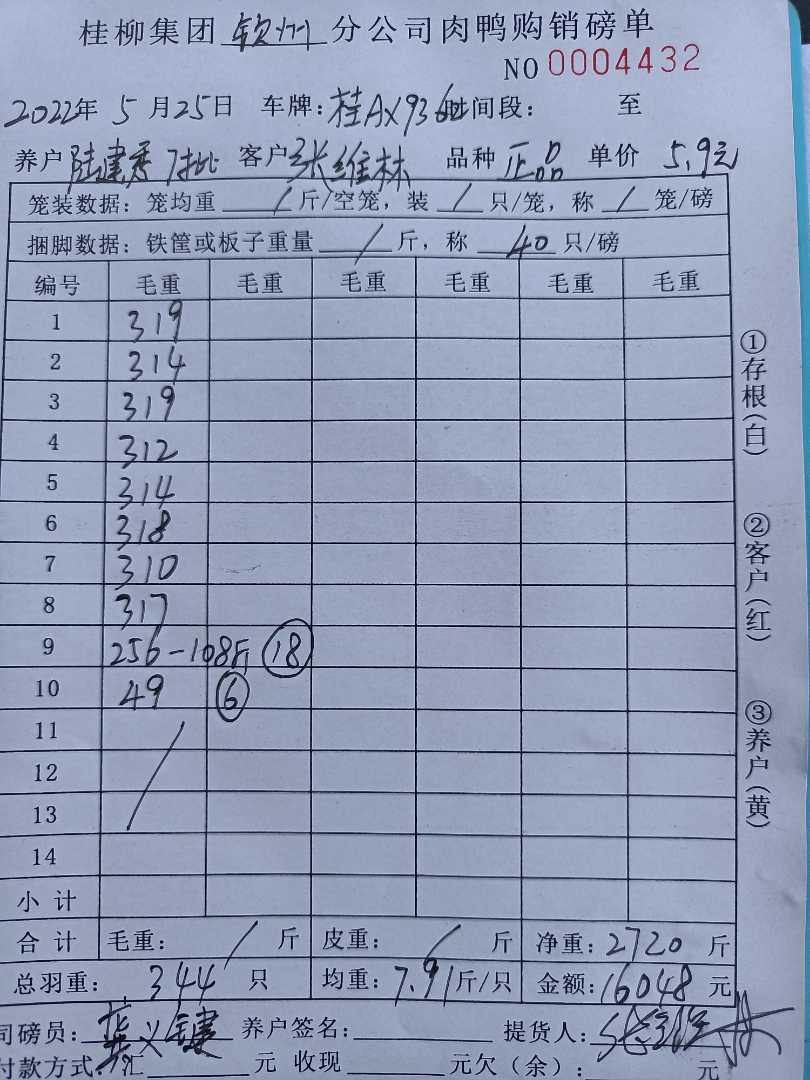 桂柳集团 钦州 分公司肉鸭购销磅单
NO 0004432
2022年 5 月 25日 车牌: 桂AX936 时间段: 至
养户 陆建秀 7批 客户 张维林 品种 正品 单价 5.9元
笼装数据: 笼均重 / 斤/空笼, 装 / 只/笼, 称 / 笼/磅
捆脚数据: 铁筐或板子重量 / 斤, 称 40 只/磅
编号 毛重 毛重 毛重 毛重 毛重 毛重
1 319
2 314
3 319
4 312
5 314
6 318
7 310
8 317
9 256-108斤 18
10 49 6
11
12
13
14
小计
合计 毛重: / 斤 皮重: / 斤 净重: 2720 斤
总羽重: 344 只 均重: 7.91斤/只 金额: 16048 元
司磅员: 义健 养户签名: 提货人: 张维林
付款方式: 汇 元 收现 元欠(余): 元
①存根(白)
②客户(红)
③养户(黄)